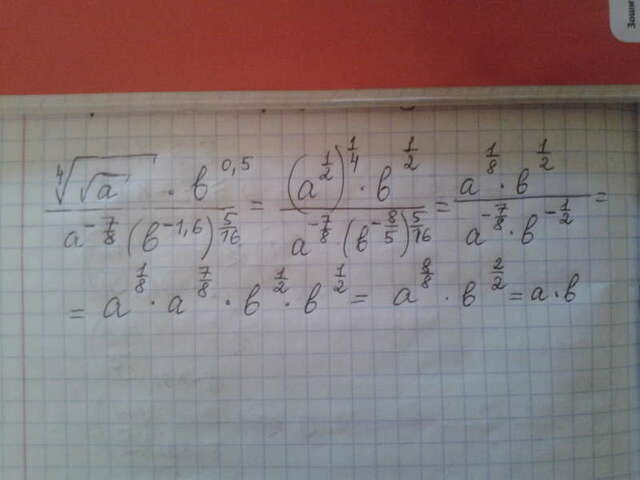 Зоши
\frac{\sqrt[4]{\sqrt{a}} \cdot в^{0,5}}{a^{-\frac{7}{8}} (в^{-1,6})^{\frac{5}{16}}} = \frac{(a^{\frac{1}{2}})^{\frac{1}{4}} \cdot в^{\frac{1}{2}}}{a^{-\frac{7}{8}} \cdot (в^{-\frac{8}{5}})^{\frac{5}{16}}} = \frac{a^{\frac{1}{8}} \cdot в^{\frac{1}{2}}}{a^{-\frac{7}{8}} \cdot в^{-\frac{1}{2}}} =
= a^{\frac{1}{8}} \cdot a^{\frac{7}{8}} \cdot в^{\frac{1}{2}} \cdot в^{\frac{1}{2}} = a^{\frac{8}{8}} \cdot в^{\frac{2}{2}} = a \cdot в